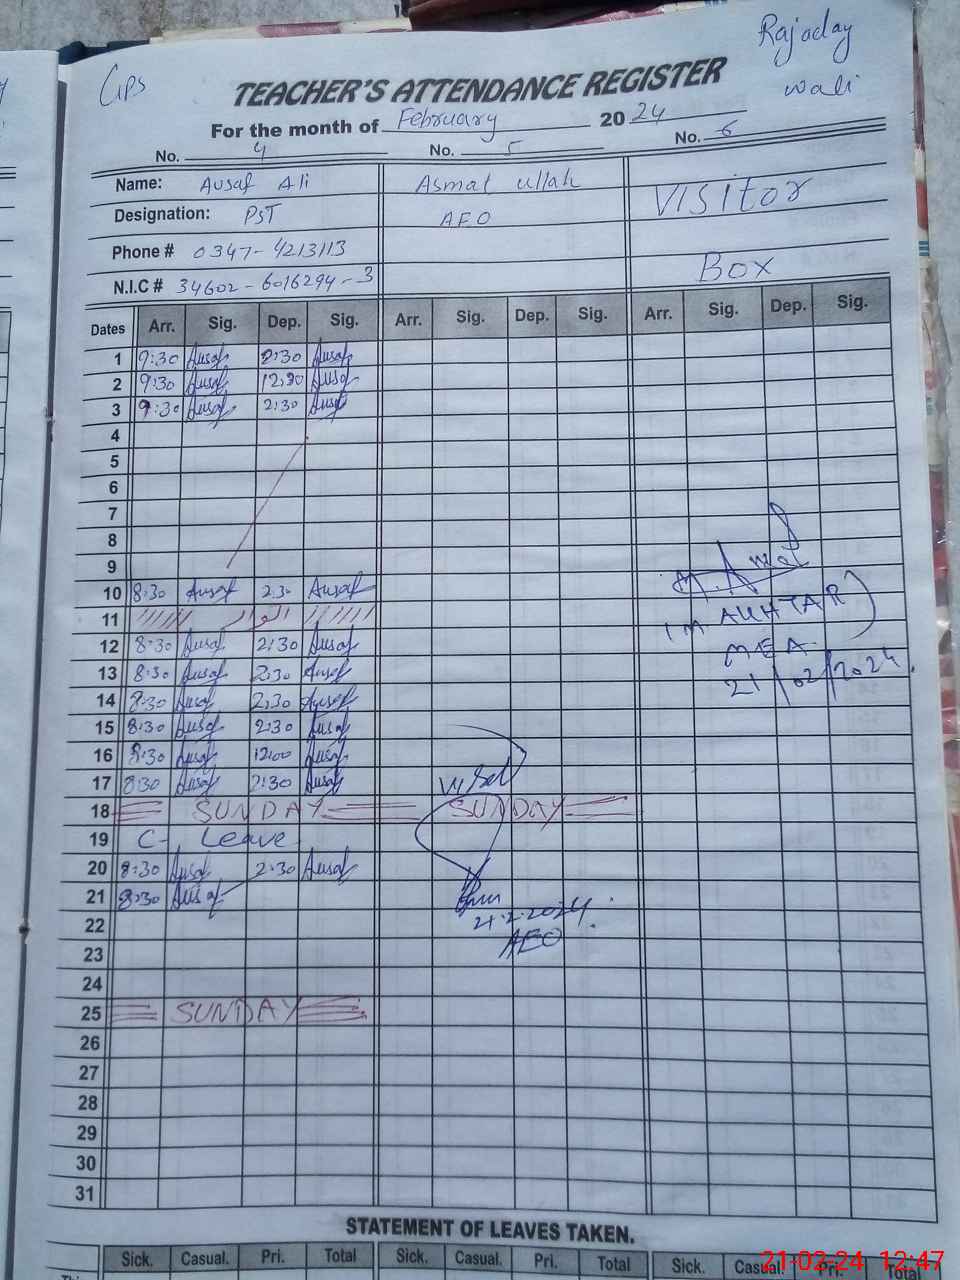 GPS
Rajaday
wali
TEACHER'S ATTENDANCE REGISTER
For the month of February 2024
No. 4 No. 5 No. 6
Name: Ausaf Ali Asmat ullah VISitor
Designation: PST AEO
Phone # 0347-4213113
N.I.C # 34602-6016294-3 Box
Dates Arr. Sig. Dep. Sig. Arr. Sig. Dep. Sig. Arr. Sig. Dep. Sig.
1 9:30 Ausaf 2:30 Ausaf
2 9:30 Ausaf 12:30 Ausaf
3 9:30 Ausaf 2:30 Ausaf
4
5
6
7
8
9
10 8:30 Ausaf 2:30 Ausaf
11 اتوار
12 8:30 Ausaf 2:30 Ausaf
13 8:30 Ausaf 2:30 Ausaf
14 8:30 Ausaf 2:30 Ausaf
15 8:30 Ausaf 2:30 Ausaf
16 8:30 Ausaf 12:00 Ausaf
17 8:30 Ausaf 2:30 Ausaf
18 SUNDAY SUNDAY
19 C- Leave
20 8:30 Ausaf 2:30 Ausaf
21 8:30 Ausaf
22
23
24
25 SUNDAY
26
27
28
29
30
31
(M AKHTAR)
MEA
21/02/2024.
21.2.2024.
AEO
STATEMENT OF LEAVES TAKEN.
Sick. Casual. Pri. Total Sick. Casual. Pri. Total Sick. Casual. Pri. Total
21-02-24 12:47